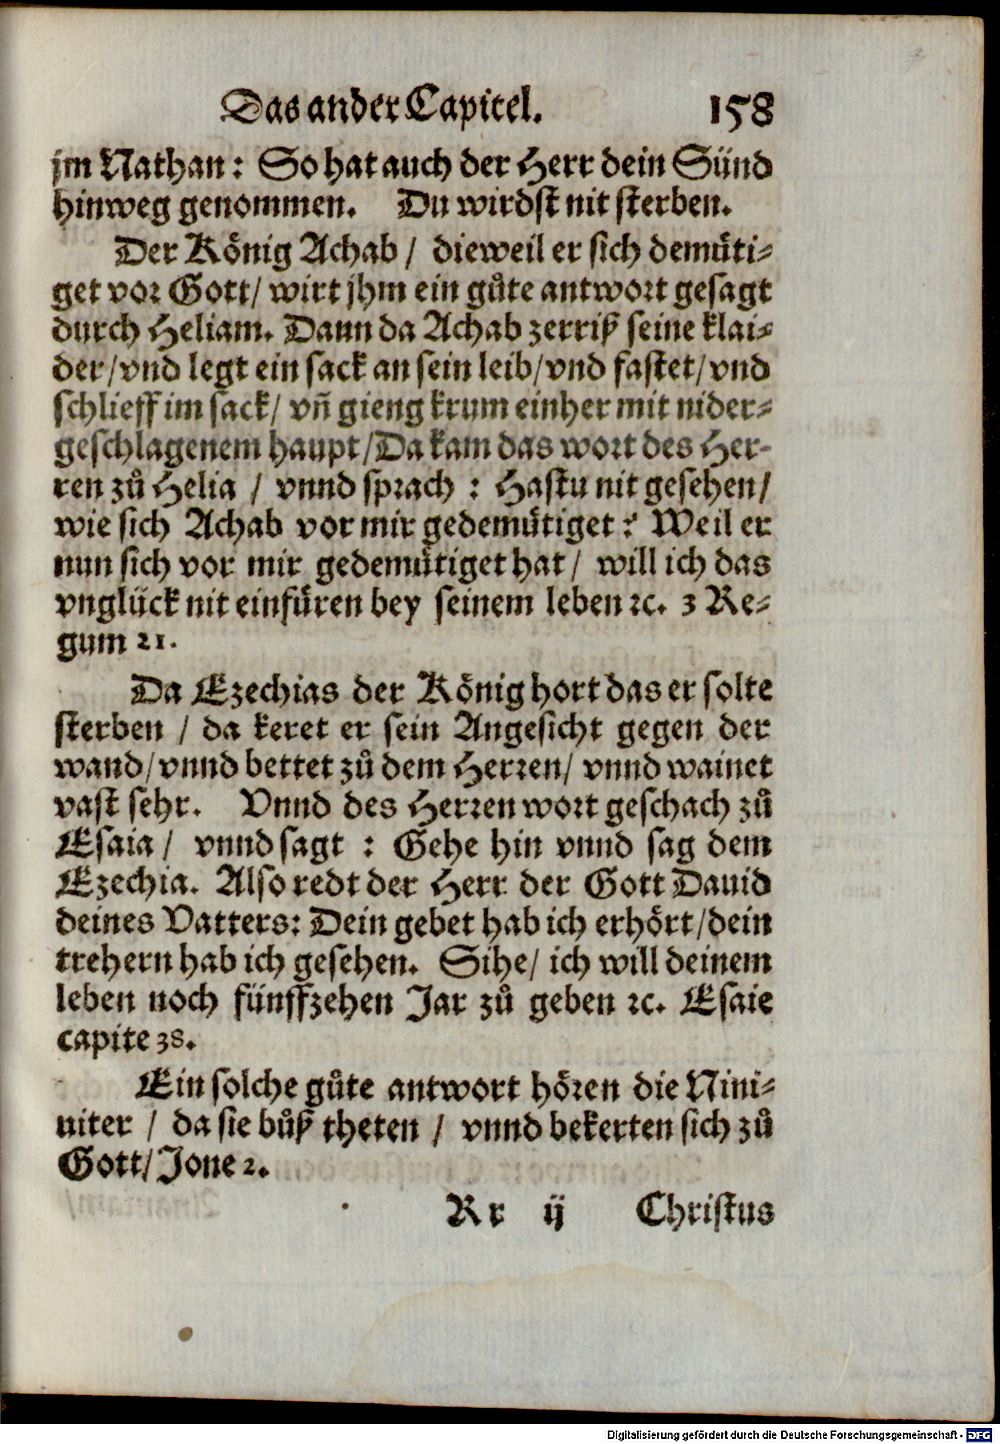 Das ander Capitel. 158
jm Nathan: So hat auch der Herr dein Sünd
hinweg genommen. Du wirdst nit sterben.
Der König Achab / dieweil er sich demuͤti-
get vor Gott/ wirt jhm ein guͦte antwort gesagt
durch Heliam. Dann da Achab zerriß seine klai-
der/vnd legt ein sack an sein leib/vnd fastet/vnd
schlieff im sack/ vn̄ gieng krum einher mit nider-
geschlagenem haupt/Da kam das wort des Her-
ren zuͦ Helia / vnnd sprach : Hastu nit gesehen/
wie sich Achab vor mir gedemuͤtiget? Weil er
nun sich vor mir gedemuͤtiget hat/ will ich das
vnglück nit einfuͤren bey seinem leben ⁊c. 3 Re-
gum 21.
Da Ezechias der König hort das er solte
sterben / da keret er sein Angesicht gegen der
wand/vnnd bettet zuͦ dem Herꝛen/ vnnd wainet
vast sehr. Vnnd des Herꝛen wort geschach zuͦ
Esaia/ vnnd sagt : Gehe hin vnnd sag dem
Ezechia. Also redt der Herr der Gott Dauid
deines Vatters: Dein gebet hab ich erhört/dein
trehern hab ich gesehen. Sihe/ ich will deinem
leben noch fünffzehen Jar zuͦ geben ⁊c. Esaie
capite 38.
Ein solche guͦte antwort hören die Nini-
uiter / da sie buͦß theten / vnnd bekerten sich zuͦ
Gott/Jone 2.
Rr ij Christus
Digitalisierung gefördert durch die Deutsche Forschungsgemeinschaft - DFG